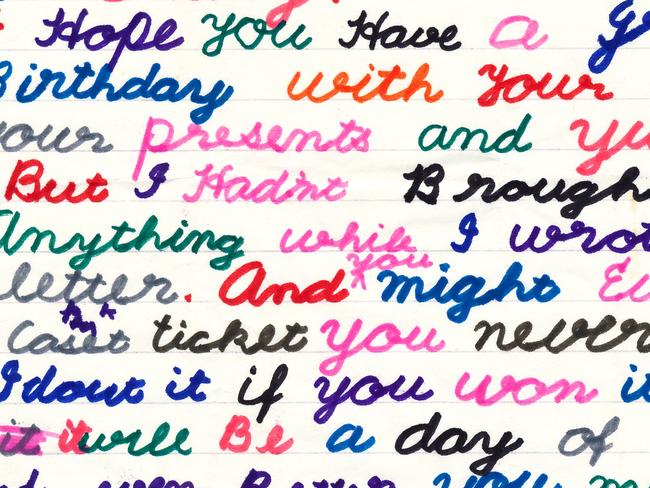 Hope you Have a
Birthday with your
your presents and
But I Hadn't Brough
Anything while I wrot
letter. And you might
ticket you never
I dout it if you won it
it will Be a day of